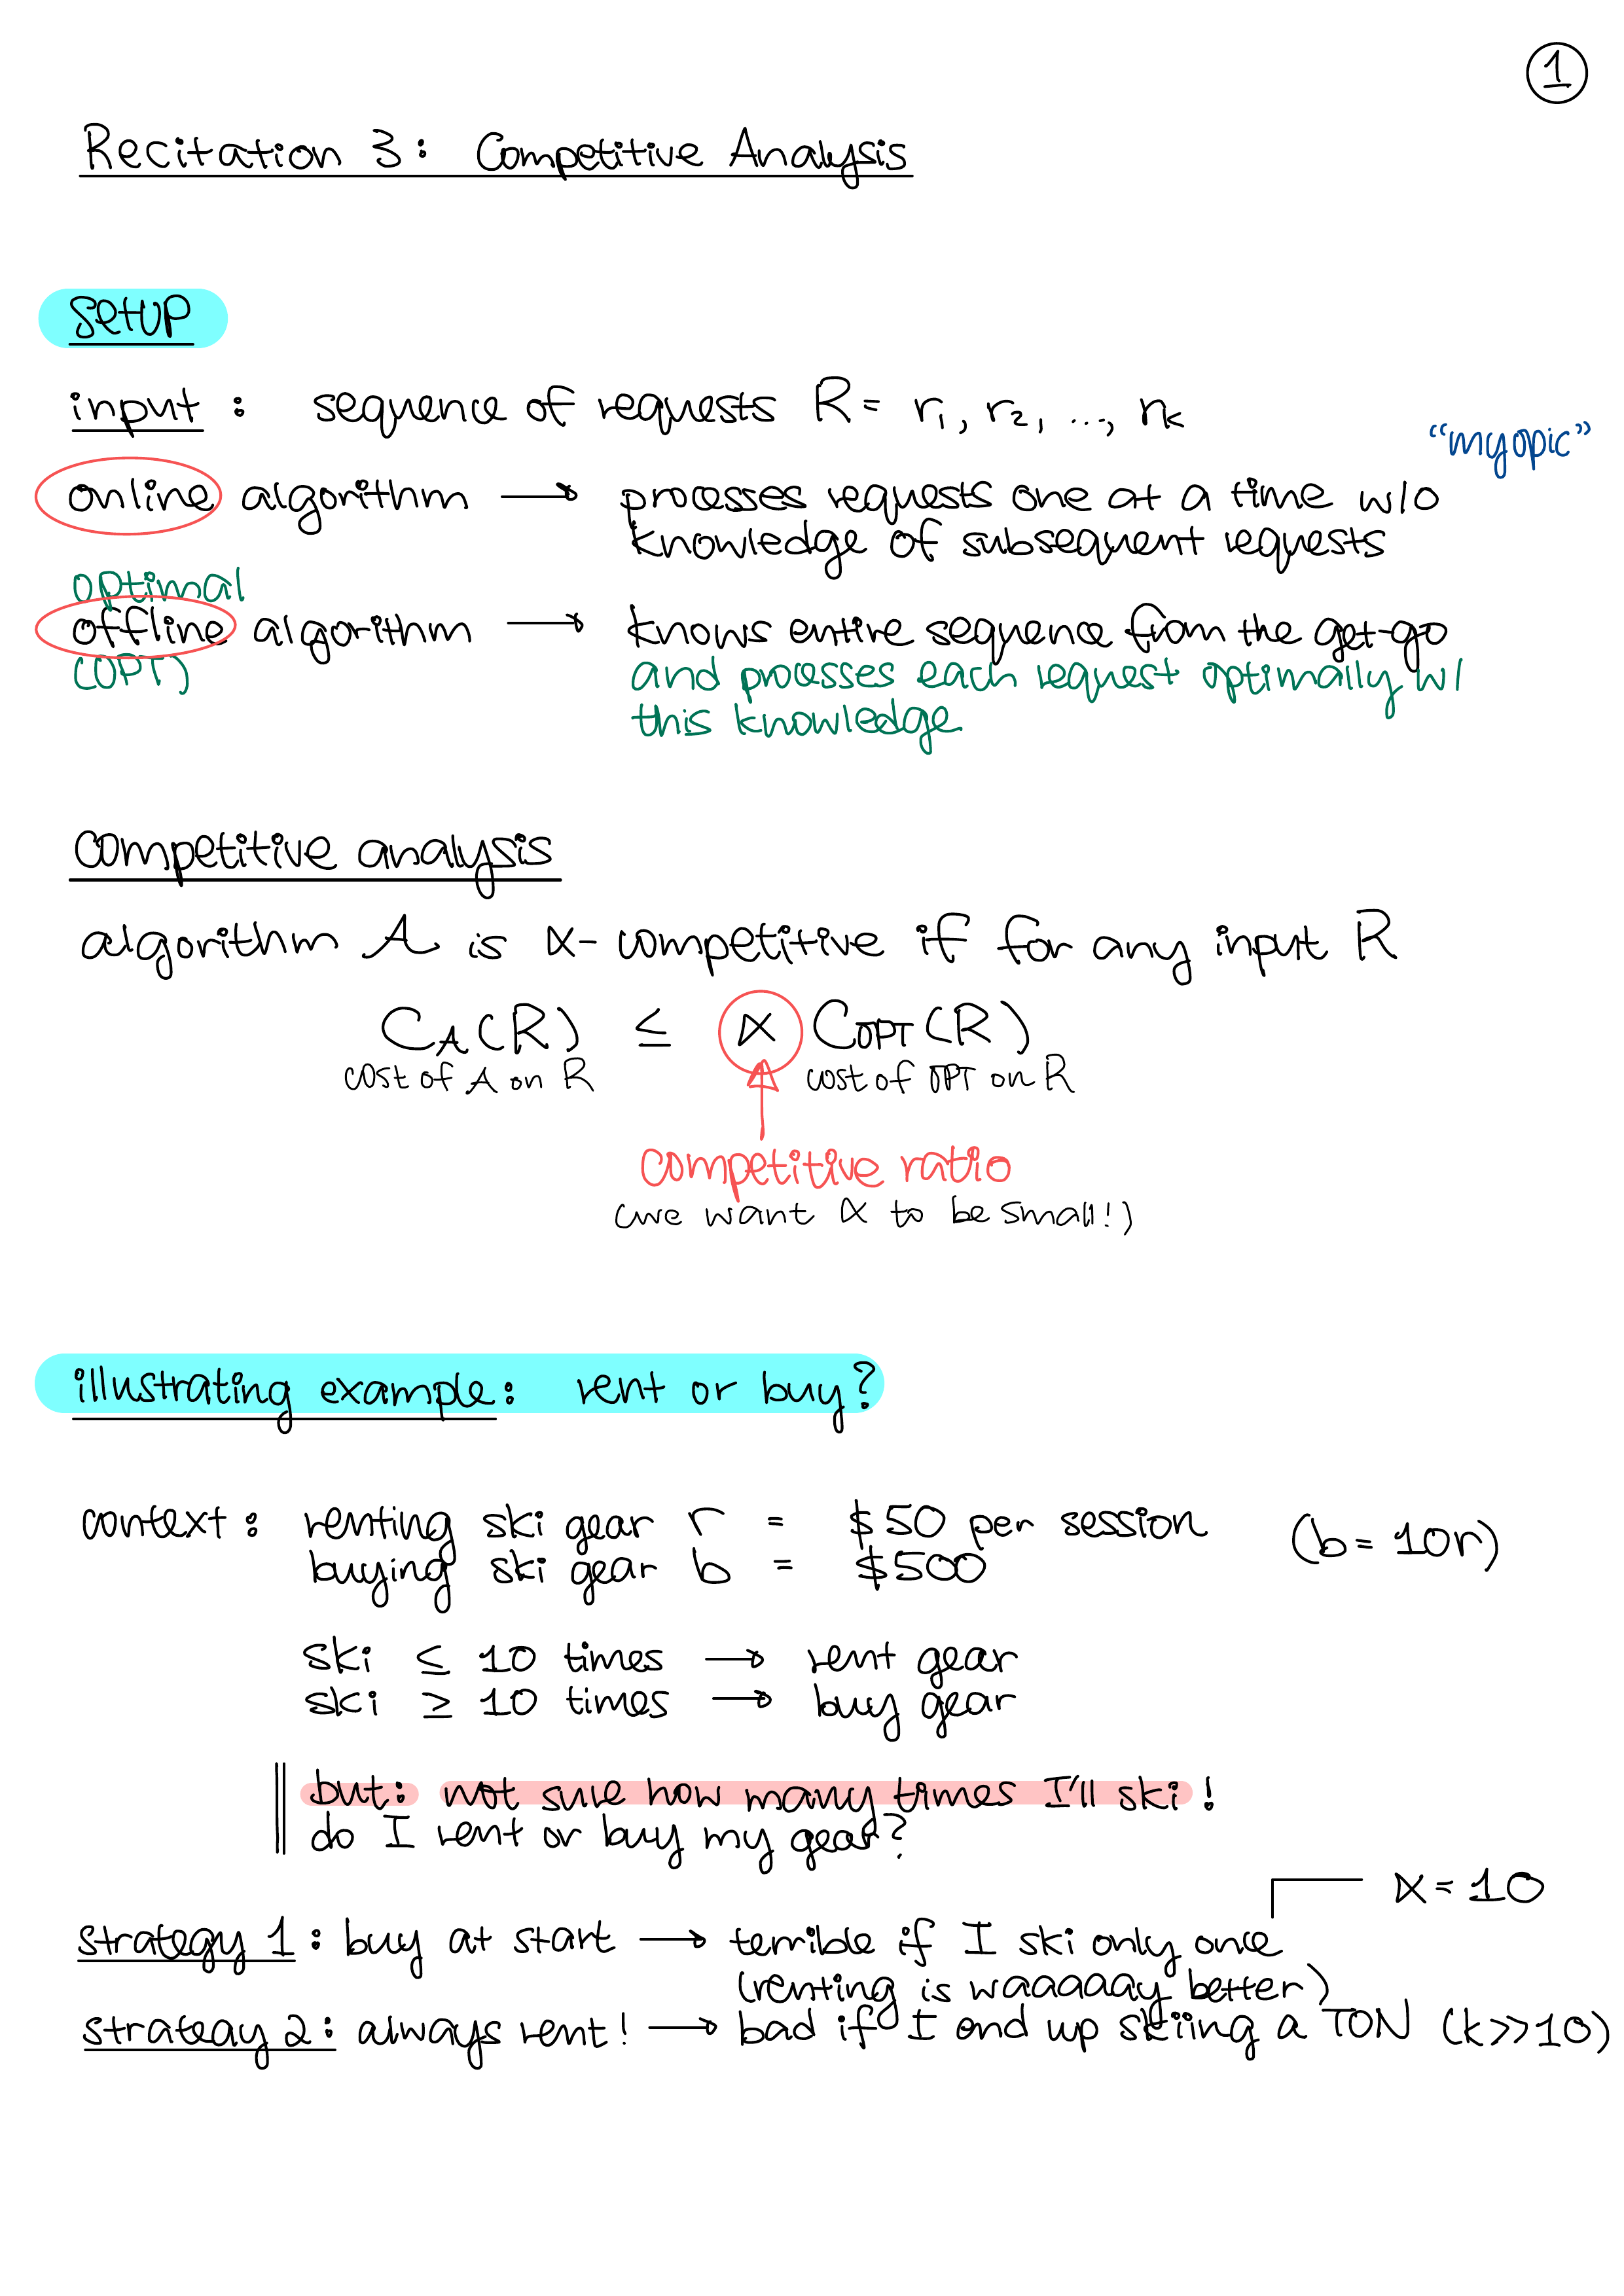 1
Recitation 3: Competitive Analysis
setup
input: sequence of requests R = r₁, r₂, ..., rₖ
"myopic"
online algorithm → processes requests one at a time w/o
knowledge of subsequent requests
optimal
offline algorithm → knows entire sequence from the get-go
(OPT) and processes each request optimally w/
this knowledge
competitive analysis
algorithm A is α-competitive if for any input R
C_A(R) ≤ α C_OPT(R)
cost of A on R cost of OPT on R
competitive ratio
(we want α to be small!)
illustrating example: rent or buy?
context: renting ski gear r = $50 per session (b = 10r)
buying ski gear b = $500
ski ≤ 10 times → rent gear
ski ≥ 10 times → buy gear
but: not sure how many times I'll ski!
do I rent or buy my gear?
α = 10
strategy 1: buy at start → terrible if I ski only once
(renting is waaaaay better)
strategy 2: always rent! → bad if I end up skiing a TON (k>>10)